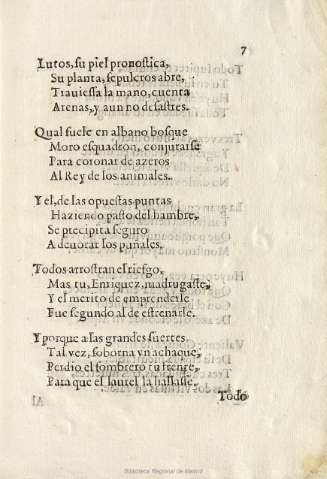 7
Lutos, su piel pronostica,
Su planta, sepulcros abre,
Trauiessa la mano, cuenta
Arenas, y aun no desastres.
Qual suele en albano bosque
Moro esquadron, conjurarse
Para coronar de azeros
Al Rey de los animales.
Y el, de las opuestas puntas
Haziendo pasto del hambre,
Se precipita seguro
A deuorar los puñales.
Todos arrostran el riesgo,
Mas tu, Enriquez, madrugaste,
Y el merito de emprenderle
Fue segundo al de estrenarle.
Y porque a las grandes suertes
Tal vez, soborna vn achaque,
Perdio el sombrero tu frente,
Para que el laurel la hallasse.
Todo
Biblioteca Regional de Madrid